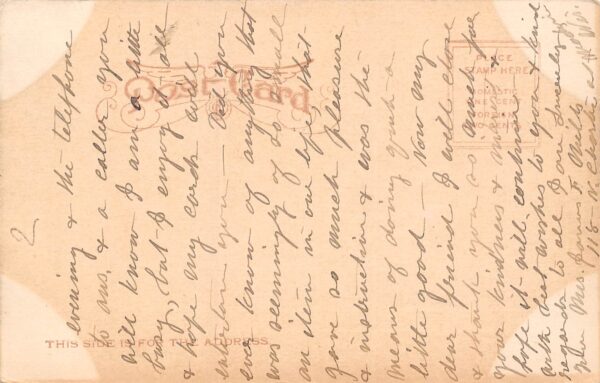 2
evening & the telephone
to ans, & a caller you
will know I am a little
busy, but I enjoy it all
& hope my cards will
entertain you — Did you
ever know of anything that
was seemingly of so small
an item in one life, that
gave so much pleasure
& instruction & was the
means of doing such a
little good — Now my
dear friend I will close
& thank you so much for
your kindness & may I
hope it will continue
with best wishes to you & kind
regards to all I am Sincerely
Mrs. James F. Mills
118 N. Charter St
Post Card
PLACE STAMP HERE
DOMESTIC
ONE CENT
FOREIGN
TWO CENTS
THIS SIDE IS FOR THE ADDRESS